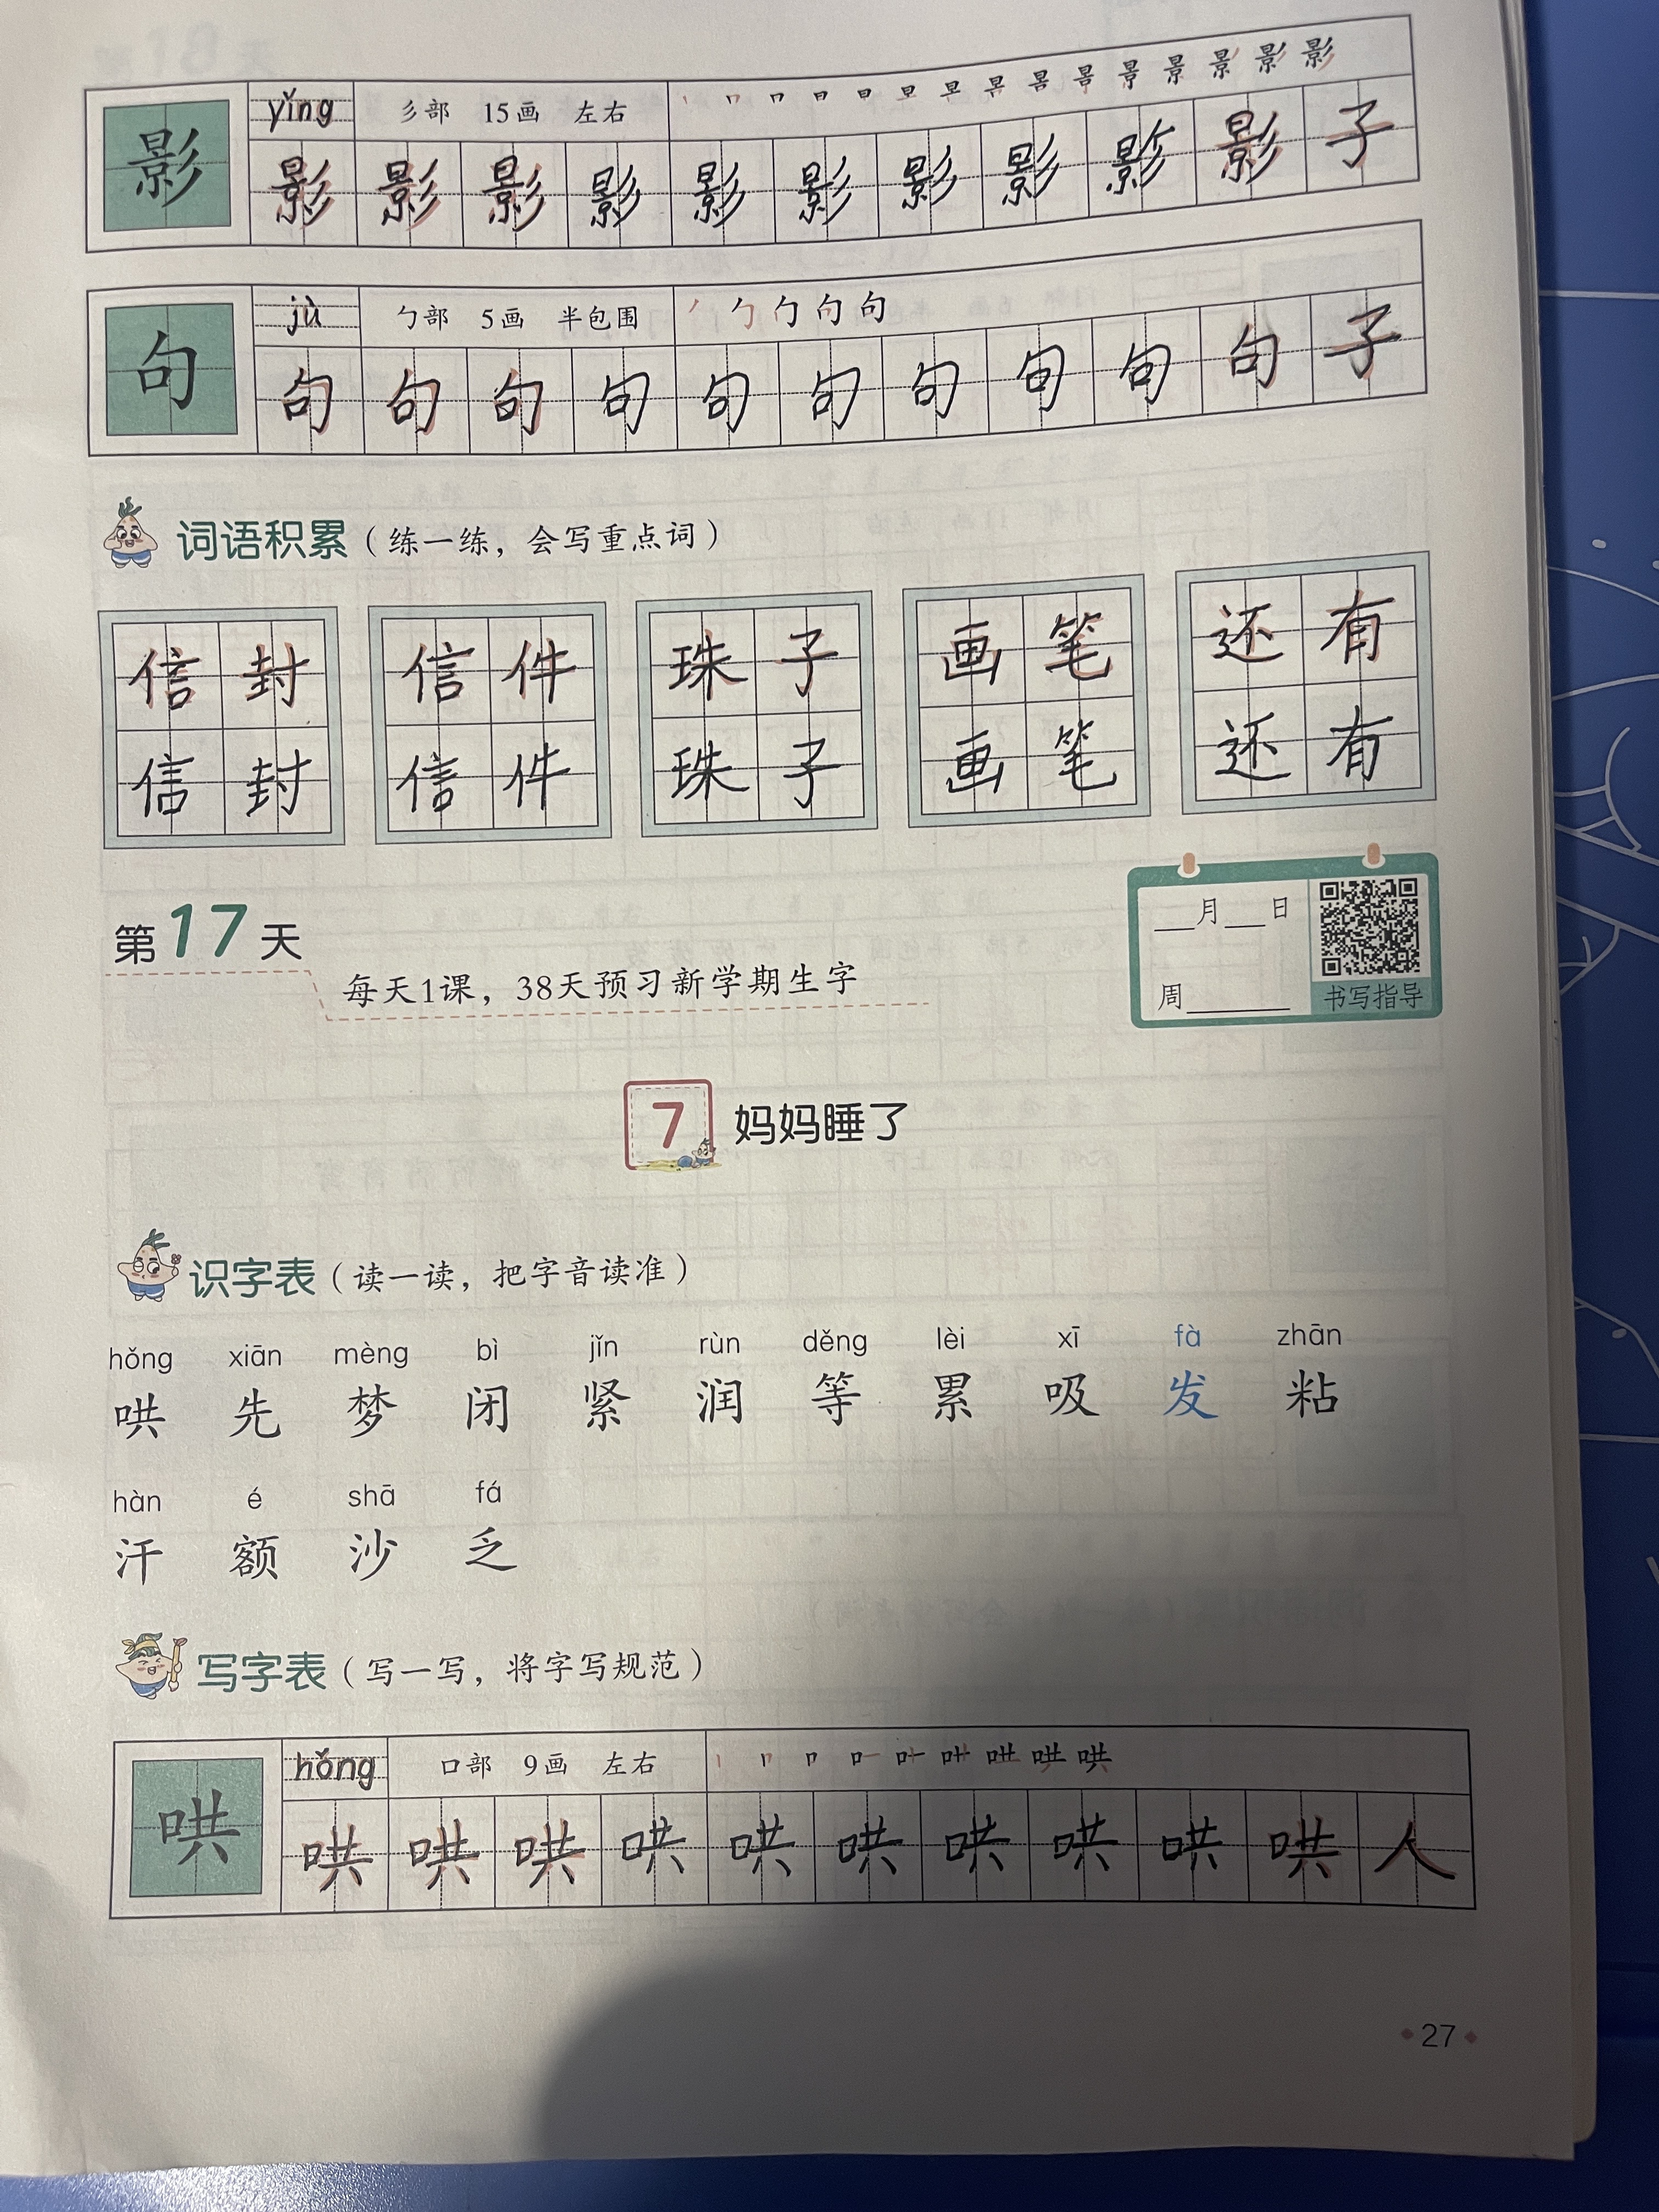 yǐng 彡部 15画 左右
影 影 影 影 影 影 影 影 影 影 影 子
jù 勹部 5画 半包围
句 句 句 句 句 句 句 句 句 句 句 子
词语积累（练一练，会写重点词）
信封 信件 珠子 画笔 还有
信封 信件 珠子 画笔 还有
第17天
每天1课，38天预习新学期生字
月 日
周
书写指导
7 妈妈睡了
识字表（读一读，把字音读准）
hǒng xiān mèng bì jǐn rùn děng lèi xī fà zhān
哄 先 梦 闭 紧 润 等 累 吸 发 粘
hàn é shā fá
汗 额 沙 乏
写字表（写一写，将字写规范）
hǒng 口部 9画 左右
哄 哄 哄 哄 哄 哄 哄 哄 哄 哄 哄 人
27